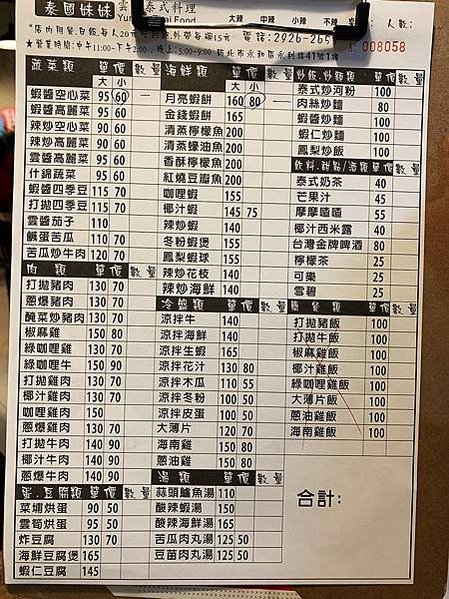 泰國妹妹 雲 泰式料理
大辣 中辣 小辣 不辣 人數:
電話:2926-265
008058
★營業時間:中午11:00~下午2:00,晚上:5:00~9:00 新北市永和區永利路41號1樓
蔬菜類 單價 數量
大 小
蝦醬空心菜 95 60 一
蝦醬高麗菜 95 60
辣炒空心菜 90 60
辣炒高麗菜 90 60
雲醬高麗菜 95 60
什錦蔬菜 95 60
蝦醬四季豆 115 70
打拋四季豆 115 70
雲醬茄子 110
鹹蛋苦瓜 110 70
苦瓜炒牛肉 120 70
肉類 單價 數量
打拋豬肉 130 70
蔥爆豬肉 130 70
醃菜炒豬肉 130 70
椒麻雞 150 80
綠咖哩雞 130 70
綠咖哩牛 150 90
打拋雞肉 130 70
椰汁雞肉 130 70
咖哩雞肉 150
蔥爆雞肉 130 70
打拋牛肉 140 90
椰汁牛肉 140 90
蔥爆牛肉 140 90
蛋.豆腐類 單價 數量
菜埔烘蛋 90 50
雲筍烘蛋 90 50
炸豆腐 130 70
海鮮豆腐煲 165
蝦仁豆腐 145
海鮮類 單價 數量
大 小
月亮蝦餅 160 80 一
金錢蝦餅 165
清蒸檸檬魚 200
清蒸蠔油魚 200
香酥檸檬魚 200
紅燒豆瓣魚 200
咖哩蝦 155
椰汁蝦 145 75
辣炒蝦 140
冬粉蝦煲 155
鳳梨蝦球 155
辣炒花枝 140
辣炒海鮮 140
冷盤類 單價 數量
涼拌牛 140
涼拌海鮮 140
涼拌生蝦 165
涼拌花汁 130 80
涼拌木瓜 110 55
涼拌冬粉 100 50
涼拌皮蛋 100 50
大薄片 120 70
海南雞 150 80
蔥油雞 150 80
湯類 單價 數量
蒜頭鱸魚湯 110
酸辣蝦湯 150
酸辣海鮮湯 165
苦瓜肉丸湯 125 50
豆苗肉丸湯 125 50
炒飯.炒麵類 單價 數量
泰式炒河粉 100
肉絲炒麵 80
蝦醬炒麵 100
蝦仁炒麵 100
鳳梨炒飯 100
飲料.甜點/湯類 單價 數量
泰式奶茶 40
芒果汁 45
摩摩喳喳 55
椰汁西米露 40
台灣金牌啤酒 80
檸檬茶 25
可樂 25
雪碧 25
簡餐類 單價 數量
打拋豬飯 100
打拋牛飯 100
椒麻雞飯 100
椰汁雞飯 100
綠咖哩雞飯 100
大薄片飯 100
蔥油雞飯 100
海南雞飯 100
合計: